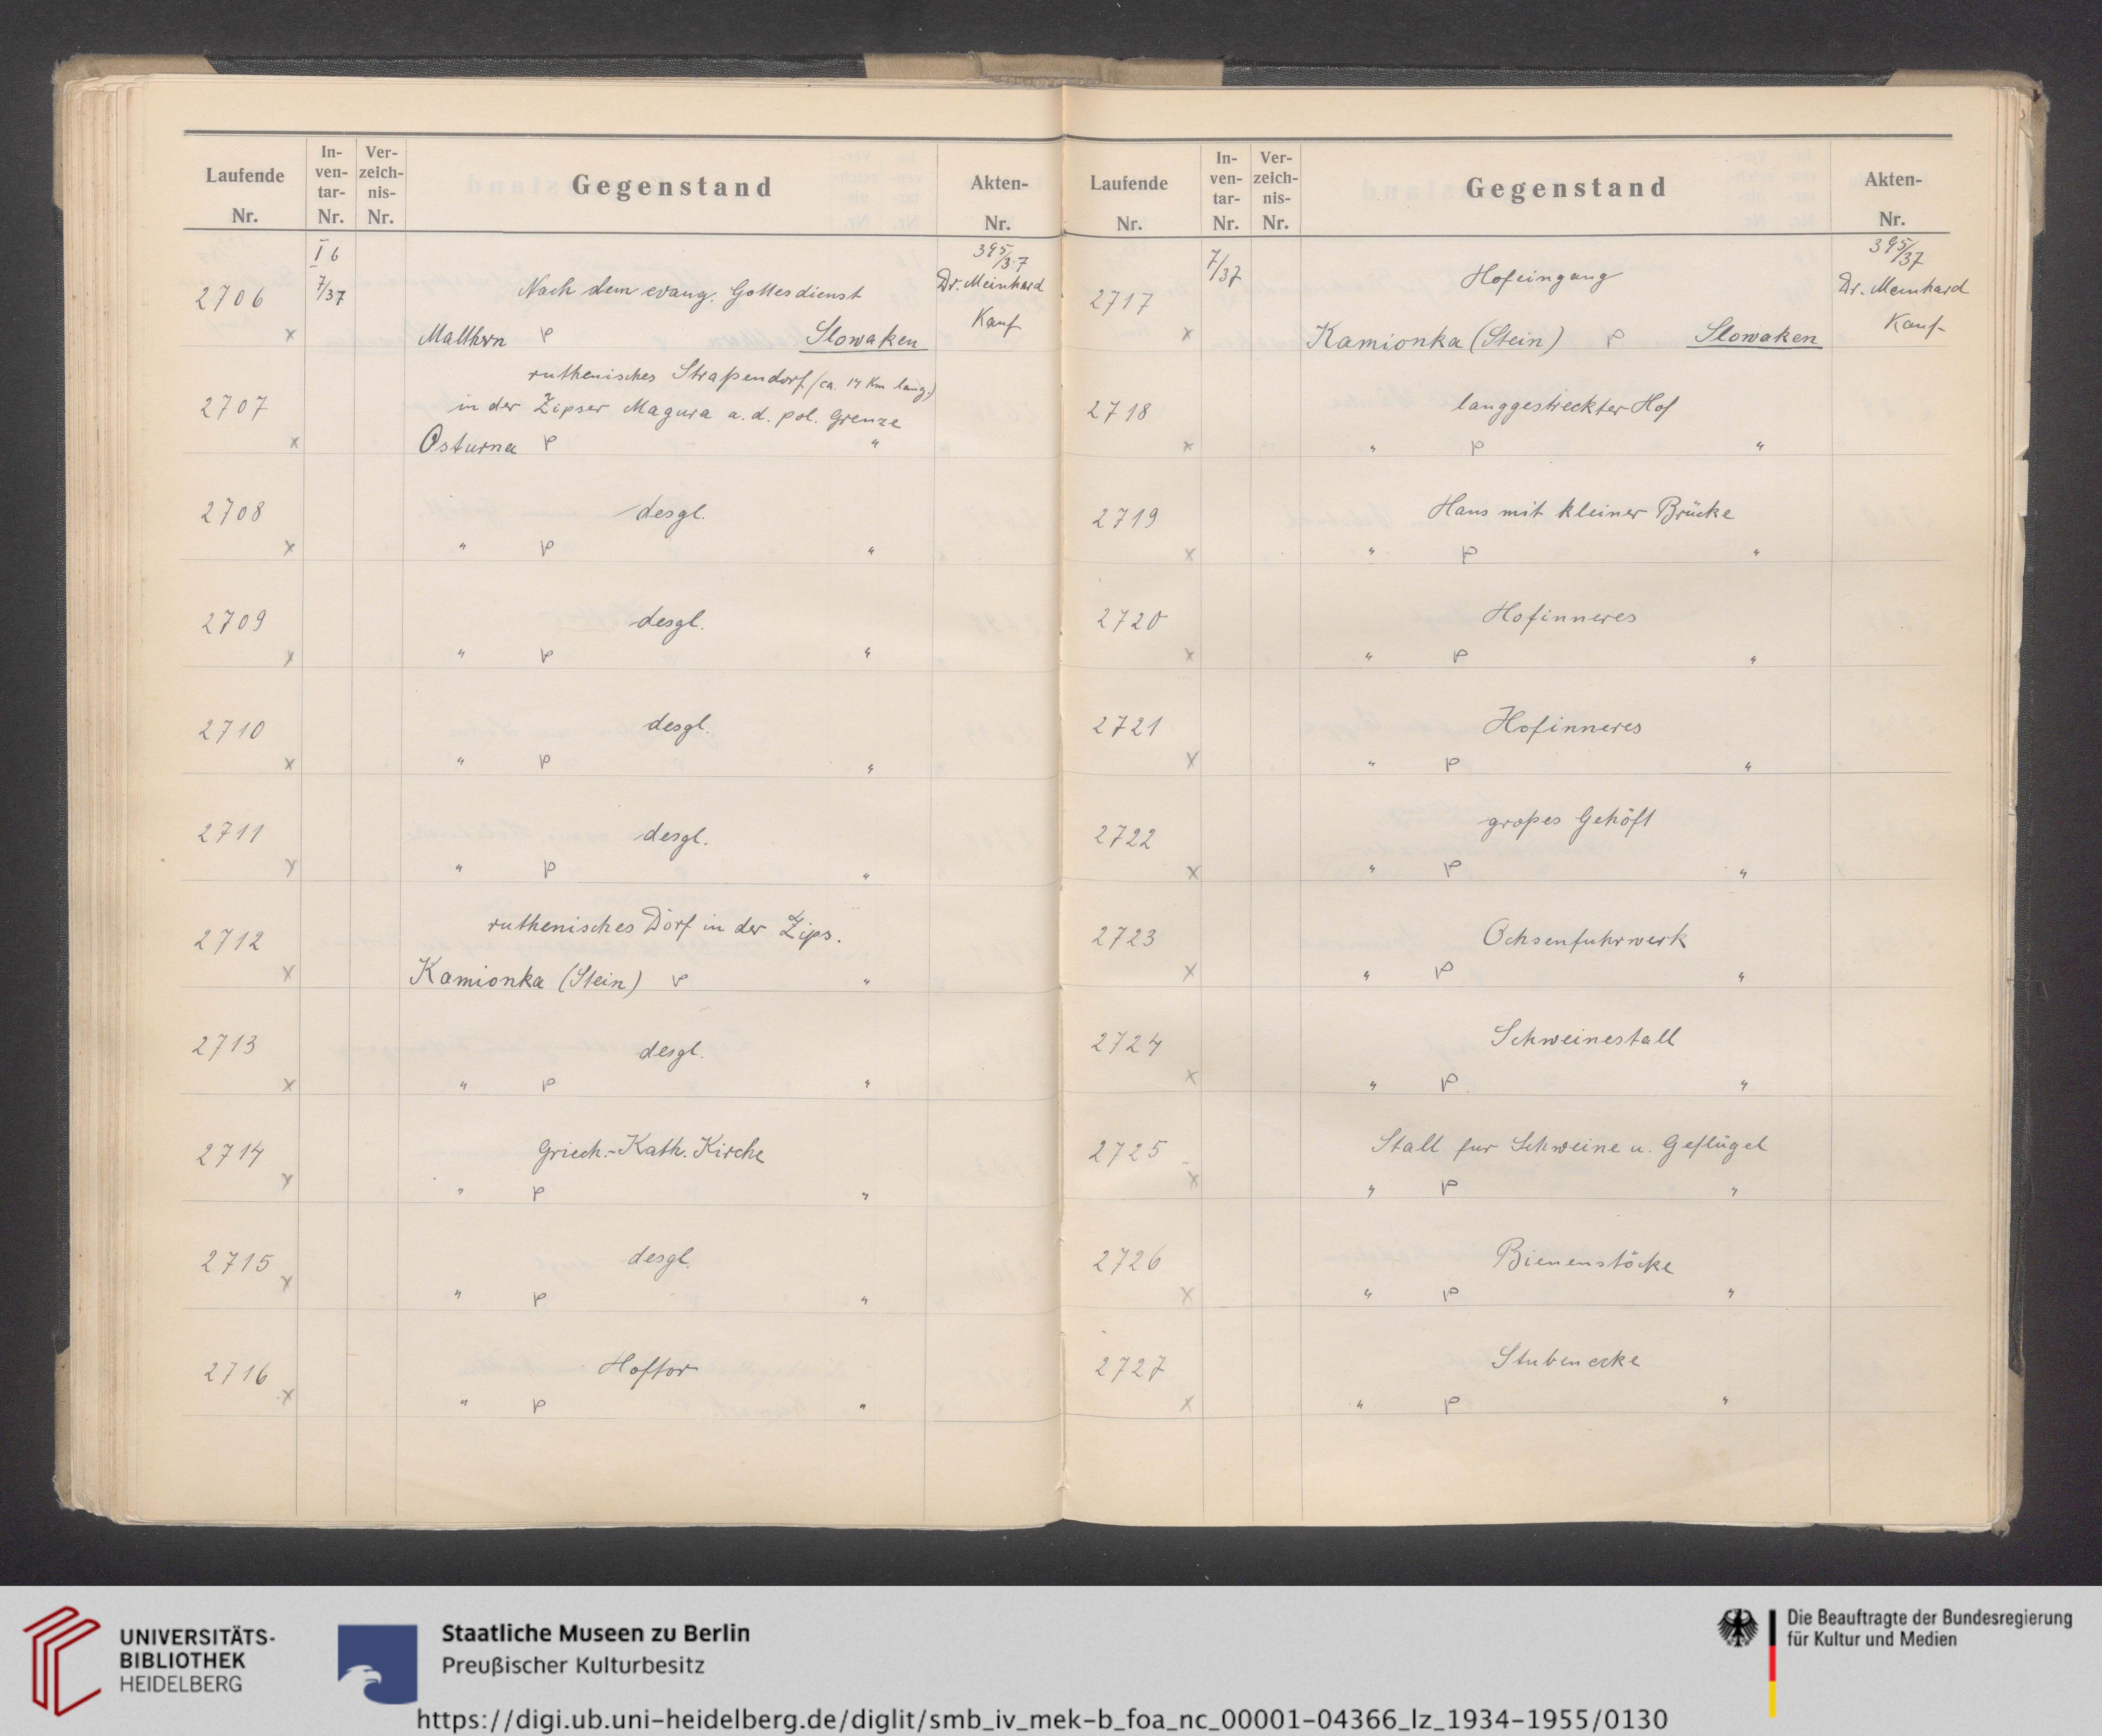 Laufende Nr.
In-ven-tar-Nr.
Ver-zeich-nis-Nr.
Gegenstand
Akten-Nr.
I 6
395/37
2706
7/37
Nach dem evang. Gottesdienst
Dr. Meinhard
Kauf
x
Matthern P Slowaken
ruthenisches Straßendorf (ca. 14 Km lang.)
2707
in der Zipser Magura a. d. pol. Grenze
x
Osturna P "
2708
desgl.
x
" P "
2709
desgl.
x
" P "
2710
desgl.
x
" P "
2711
desgl.
x
" P "
2712
ruthenisches Dorf in der Zips.
x
Kamionka (Stein) P "
2713
desgl.
x
" P "
2714
Griech.-Kath. Kirche
x
" P "
2715
desgl.
x
" P "
2716
Hoftor
x
" P "
Laufende Nr.
In-ven-tar-Nr.
Ver-zeich-nis-Nr.
Gegenstand
Akten-Nr.
7/37
395/37
2717
Hofeingang
Dr. Meinhard
Kauf
x
Kamionka (Stein) P Slowaken
2718
langgestreckter Hof
x
" P "
2719
Haus mit kleiner Brücke
x
" P "
2720
Hofinneres
x
" P "
2721
Hofinneres
x
" P "
2722
großes Gehöft
x
" P "
2723
Ochsenfuhrwerk
x
" P "
2724
Schweinestall
x
" P "
2725
Stall fur Schweine u. Geflügel
x
" P "
2726
Bienenstöcke
x
" P "
2727
Stubenecke
x
" P "
UNIVERSITÄTS-
BIBLIOTHEK
HEIDELBERG
Staatliche Museen zu Berlin
Preußischer Kulturbesitz
Die Beauftragte der Bundesregierung
für Kultur und Medien
https://digi.ub.uni-heidelberg.de/diglit/smb_iv_mek-b_foa_nc_00001-04366_lz_1934-1955/0130